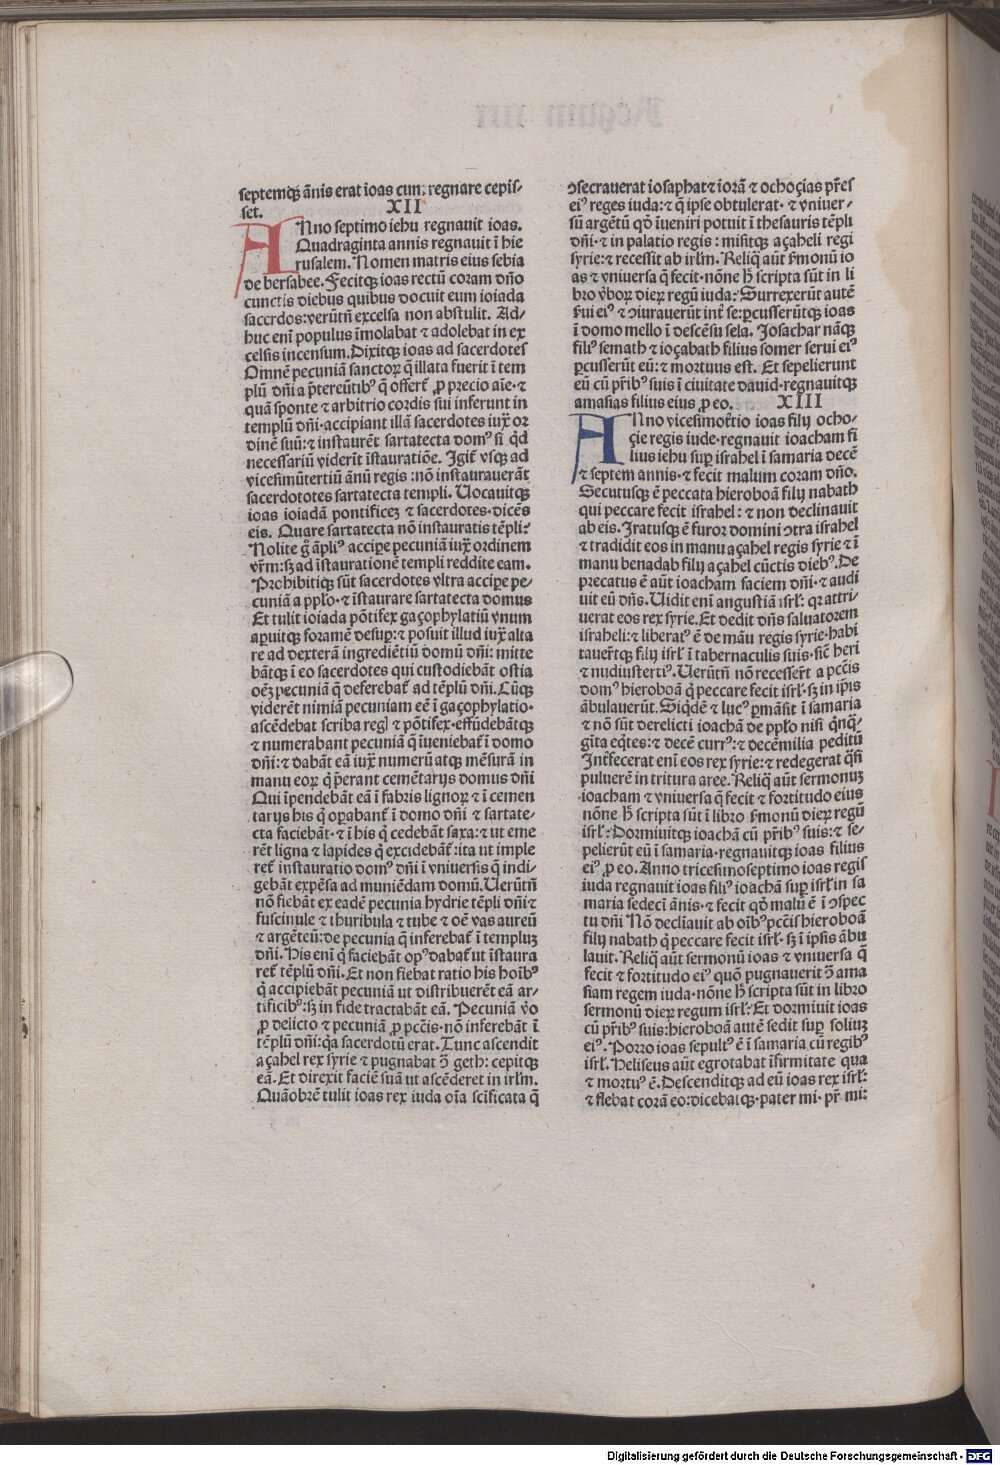 septemqꝫ ānis erat ioas cum regnare cepiſ⸗
ſet. XII
ANno ſeptimo iehu regnauit ioas.
Quadraginta annis regnauit ī hie
ruſalem. Nomen matris eius ſebia
de berſabee. Fecitqꝫ ioas rectū coram dn̄o
cunctis diebus quibus docuit eum ioiada
ſacerdos: verūtn̄ excelſa non abſtulit. Ad⸗
huc enī populus īmolabat ⁊ adolebat in ex
celſis incenſum. Dixitqꝫ ioas ad ſacerdotes
Omnē pecuniā ſanctoꝝ q̄ illata fuerit ī tem
plū dn̄i a p̄tereūtibꝰ q̄ offert᷑ ꝓ precio aīe·⁊
quā ſponte ⁊ arbitrio cordis ſui inferunt in
templū dn̄i·accipiant illā ſacerdotes iuxͭ or
dinē ſuū:⁊ inſtaurēt ſartatecta domꝰ ſi qͥd
neceſſariū viderīt īſtauratiōe. Igit᷑ vſqꝫ ad
viceſimūtertiū ānū regis :nō inſtaurauerāt
ſacerdototes ſartatecta templi. Vocauitqꝫ
ioas ioiadā pontificeꝫ ⁊ ſacerdotes·dicēs
eis. Quare ſartatecta nō inſtauratis tēpli:
Nolite gͦ āpliꝰ accipe pecuniā iuxͭ ordinem
vr̄m:ſꝫ ad īſtaurationē templi reddite eam.
Prohibitiqꝫ ſūt ſacerdotes vltra accipe pe⸗
cuniā a pplo·⁊ īſtaurare ſartatecta domus
Et tulit ioiada pōtifex gaçophylatiū vnum
aꝑuitqꝫ foramē deſup:⁊ poſuit illud iuxͭ alta
re ad dexterā ingrediētiū domū dn̄i: mitte
bātqꝫ ī eo ſacerdotes qui cuſtodiebāt oſtia
oēꝫ pecuniā q̄ deferebat᷑ ad tēplū dn̄i. Cūqꝫ
viderēt nimiā pecuniam eē ī gaçophylatio·
aſcēdebat ſcriba regꝭ ⁊ pōtifex·effūdebātqꝫ
⁊ numerabant pecuniā q̄ īueniebat᷑ ī domo
dn̄i:⁊ dabāt eā iuxͭ numerū atqꝫ mēſurā in
manu eoꝝ q̄ p̄erant cemētarijs domus dn̄i
Qui īpendebāt eā ī fabris lignoꝝ ⁊ ī cemen
tarijs his q̄ oꝑabant᷑ ī domo dn̄i ⁊ ſartate⸗
cta faciebāt·⁊ ī his q̄ cedebāt ſaxa:⁊ ut eme
rēt ligna ⁊ lapides q̄ excidebāt᷑:ita ut imple
ret᷑ inſtauratio domꝰ dn̄i ī vniuerſis q̄ indi⸗
gebāt expēſa ad muniēdam domū. Verūtn̄
nō fiebāt ex eadē pecunia hydrie tēpli dn̄i⁊
fuſcinule ⁊ thuribula ⁊ tube ⁊ oē vas aureū
⁊ argēteū:de pecunia q̄ inferebat᷑ ī templuꝫ
dn̄i. His enī q̄ faciebāt opꝰ dabat᷑ ut īſtaura
ret᷑ tēplū dn̄i. Et non fiebat ratio his hoībꝰ
q̄ accipiebāt pecuniā ut diſtribuerēt eā ar⸗
tificibꝰ:ſꝫ in fide tractabāt eā. Pecuniā v̄o
ꝓ delicto ⁊ pecuniā ꝓ pctīs·nō inferebāt ī
tēplū dn̄i:qͥa ſacerdotū erat. Tunc aſcendit
açahel rex ſyrie ⁊ pugnabat ꝯ̄ geth: cepitqꝫ
eā. Et direxit faciē ſuā ut aſcēderet in irlm̄.
Quāobrē tulit ioas rex iuda oīa ſcīficata q̄
ꝯſecrauerat ioſaphat⁊ iorā ⁊ ochoçias pr̄es
eiꝰ reges iuda:⁊ q̄ ipſe obtulerat·⁊ vniuer⸗
ſū argētū qͦd īueniri potuit ī theſauris tēpli
dn̄i·⁊ in palatio regis : miſitqꝫ açaheli regi
ſyrie:⁊ receſſit ab irlm̄. Reliqͣ aūt ẜmonū io
as ⁊ vniuerſa q̄ fecit·nōne h̄ ſcripta ſūt in li
bro v̓boꝝ dieꝝ regū iuda: Surrexerūt autē
ẜui eiꝰ ⁊ ꝯiurauerūt int᷑ ſe:ꝑcuſſerūtqꝫ ioas
ī domo mello ī deſcēſu ſela. Ioſachar nāqꝫ
filiꝰ ſemath ⁊ ioçabath filius ſomer ſerui eiꝰ
ꝑcuſſerūt eū:⁊ mortuus eſt. Et ſepelierunt
eū cū pr̄ibꝰ ſuis ī ciuitate dauid·regnauitqꝫ
amaſias filius eius ꝓ eo. XIII
ANno viceſimot̓tio ioas filij ocho⸗
çie regis iude·regnauit ioacham fi
lius iehu ſuꝑ iſrahel ī ſamaria decē
⁊ ſeptem annis·⁊ fecit malum coram dn̄o.
Secutuſqꝫ ē peccata hieroboā filij nabath
qui peccare fecit iſrahel: ⁊ non declinauit
ab eis. Iratuſqꝫ ē furor domini ꝯtra iſrahel
⁊ tradidit eos in manu açahel regis ſyrie ⁊ ī
manu benadab filij açahel cūctis diebꝰ. De
precatus ē aūt ioacham faciem dn̄i·⁊ audi
uit eū dn̄s. Vidit enī anguſtiā iſrl̄: qꝛ attri⸗
uerat eos rex ſyrie. Et dedit dn̄s ſaluatorem
iſraheli:⁊ liberatꝰ ē de māu regis ſyrie·habi
tauer̄tqꝫ filij iſrl̄ ī tabernaculis ſuis·ſic̄ heri
⁊ nudiuſtertiꝰ. Verūtn̄ nō receſſer̄t a pctīs
domꝰ hieroboā q̄ peccare fecit iſrl̄·ſꝫ in ip̄is
ābulauerūt. Siqͥdē ⁊ lucꝰ ꝑmāſit ī ſamaria
⁊ nō ſūt derelicti ioachā de pplo niſi qͥnqͣ⸗
gīta eqͥtes:⁊ decē currꝰ:⁊ decēmilia peditū
Int᷑fecerat enī eos rex ſyrie:⁊ redegerat qͣſi
puluerē in tritura aree. Reliqͣ aūt ſermonuꝫ
ioacham ⁊ vniuerſa q̄ fecit ⁊ fortitudo eius
nōne h̄ ſcripta ſūt ī libro ẜmonū dieꝝ regū
iſrl̄: Dormiuitqꝫ ioachā cū pr̄ibꝰ ſuis:⁊ ſe⸗
pelierūt eū ī ſamaria·regnauitqꝫ ioas filius
eiꝰ ꝓ eo. Anno triceſimoſeptimo ioas regis
iuda regnauit ioas filiꝰ ioachā ſuꝑ iſrl̄ in ſa
maria ſedecī ānis·⁊ fecit qͦd malū ē ī ꝯſpec
tu dn̄i Nō declīauit ab oībꝰ pctīs hieroboā
filij nabath q̄ peccare fecit iſrl̄· ſꝫ ī ipſis ābu
lauit. Reliqͣ aūt ſermonū ioas ⁊ vniuerſa q̄
fecit ⁊ fortitudo eiꝰ quō pugnauerit ꝯ̄ ama
ſiam regem iuda·nōne h̄ ſcripta ſūt in libro
ſermonū dieꝝ regum iſrl̄: Et dormiuit ioas
cū pr̄ibꝰ ſuis:hieroboā autē ſedit ſuꝑ ſoliuꝫ
eiꝰ. Porro ioas ſepultꝰ ē ī ſamaria cū regibꝰ
iſrl̄. Heliſeus aūt egrotabat īfirmitate qua
⁊ mortuꝰ ē. Deſcenditqꝫ ad eū ioas rex iſrl̄:
⁊ flebat corā eo:dicebatqꝫ·pater mi· pr̄ mi:
Digitalisierung gefördert durch die Deutsche Forschungsgemeinschaft - DFG